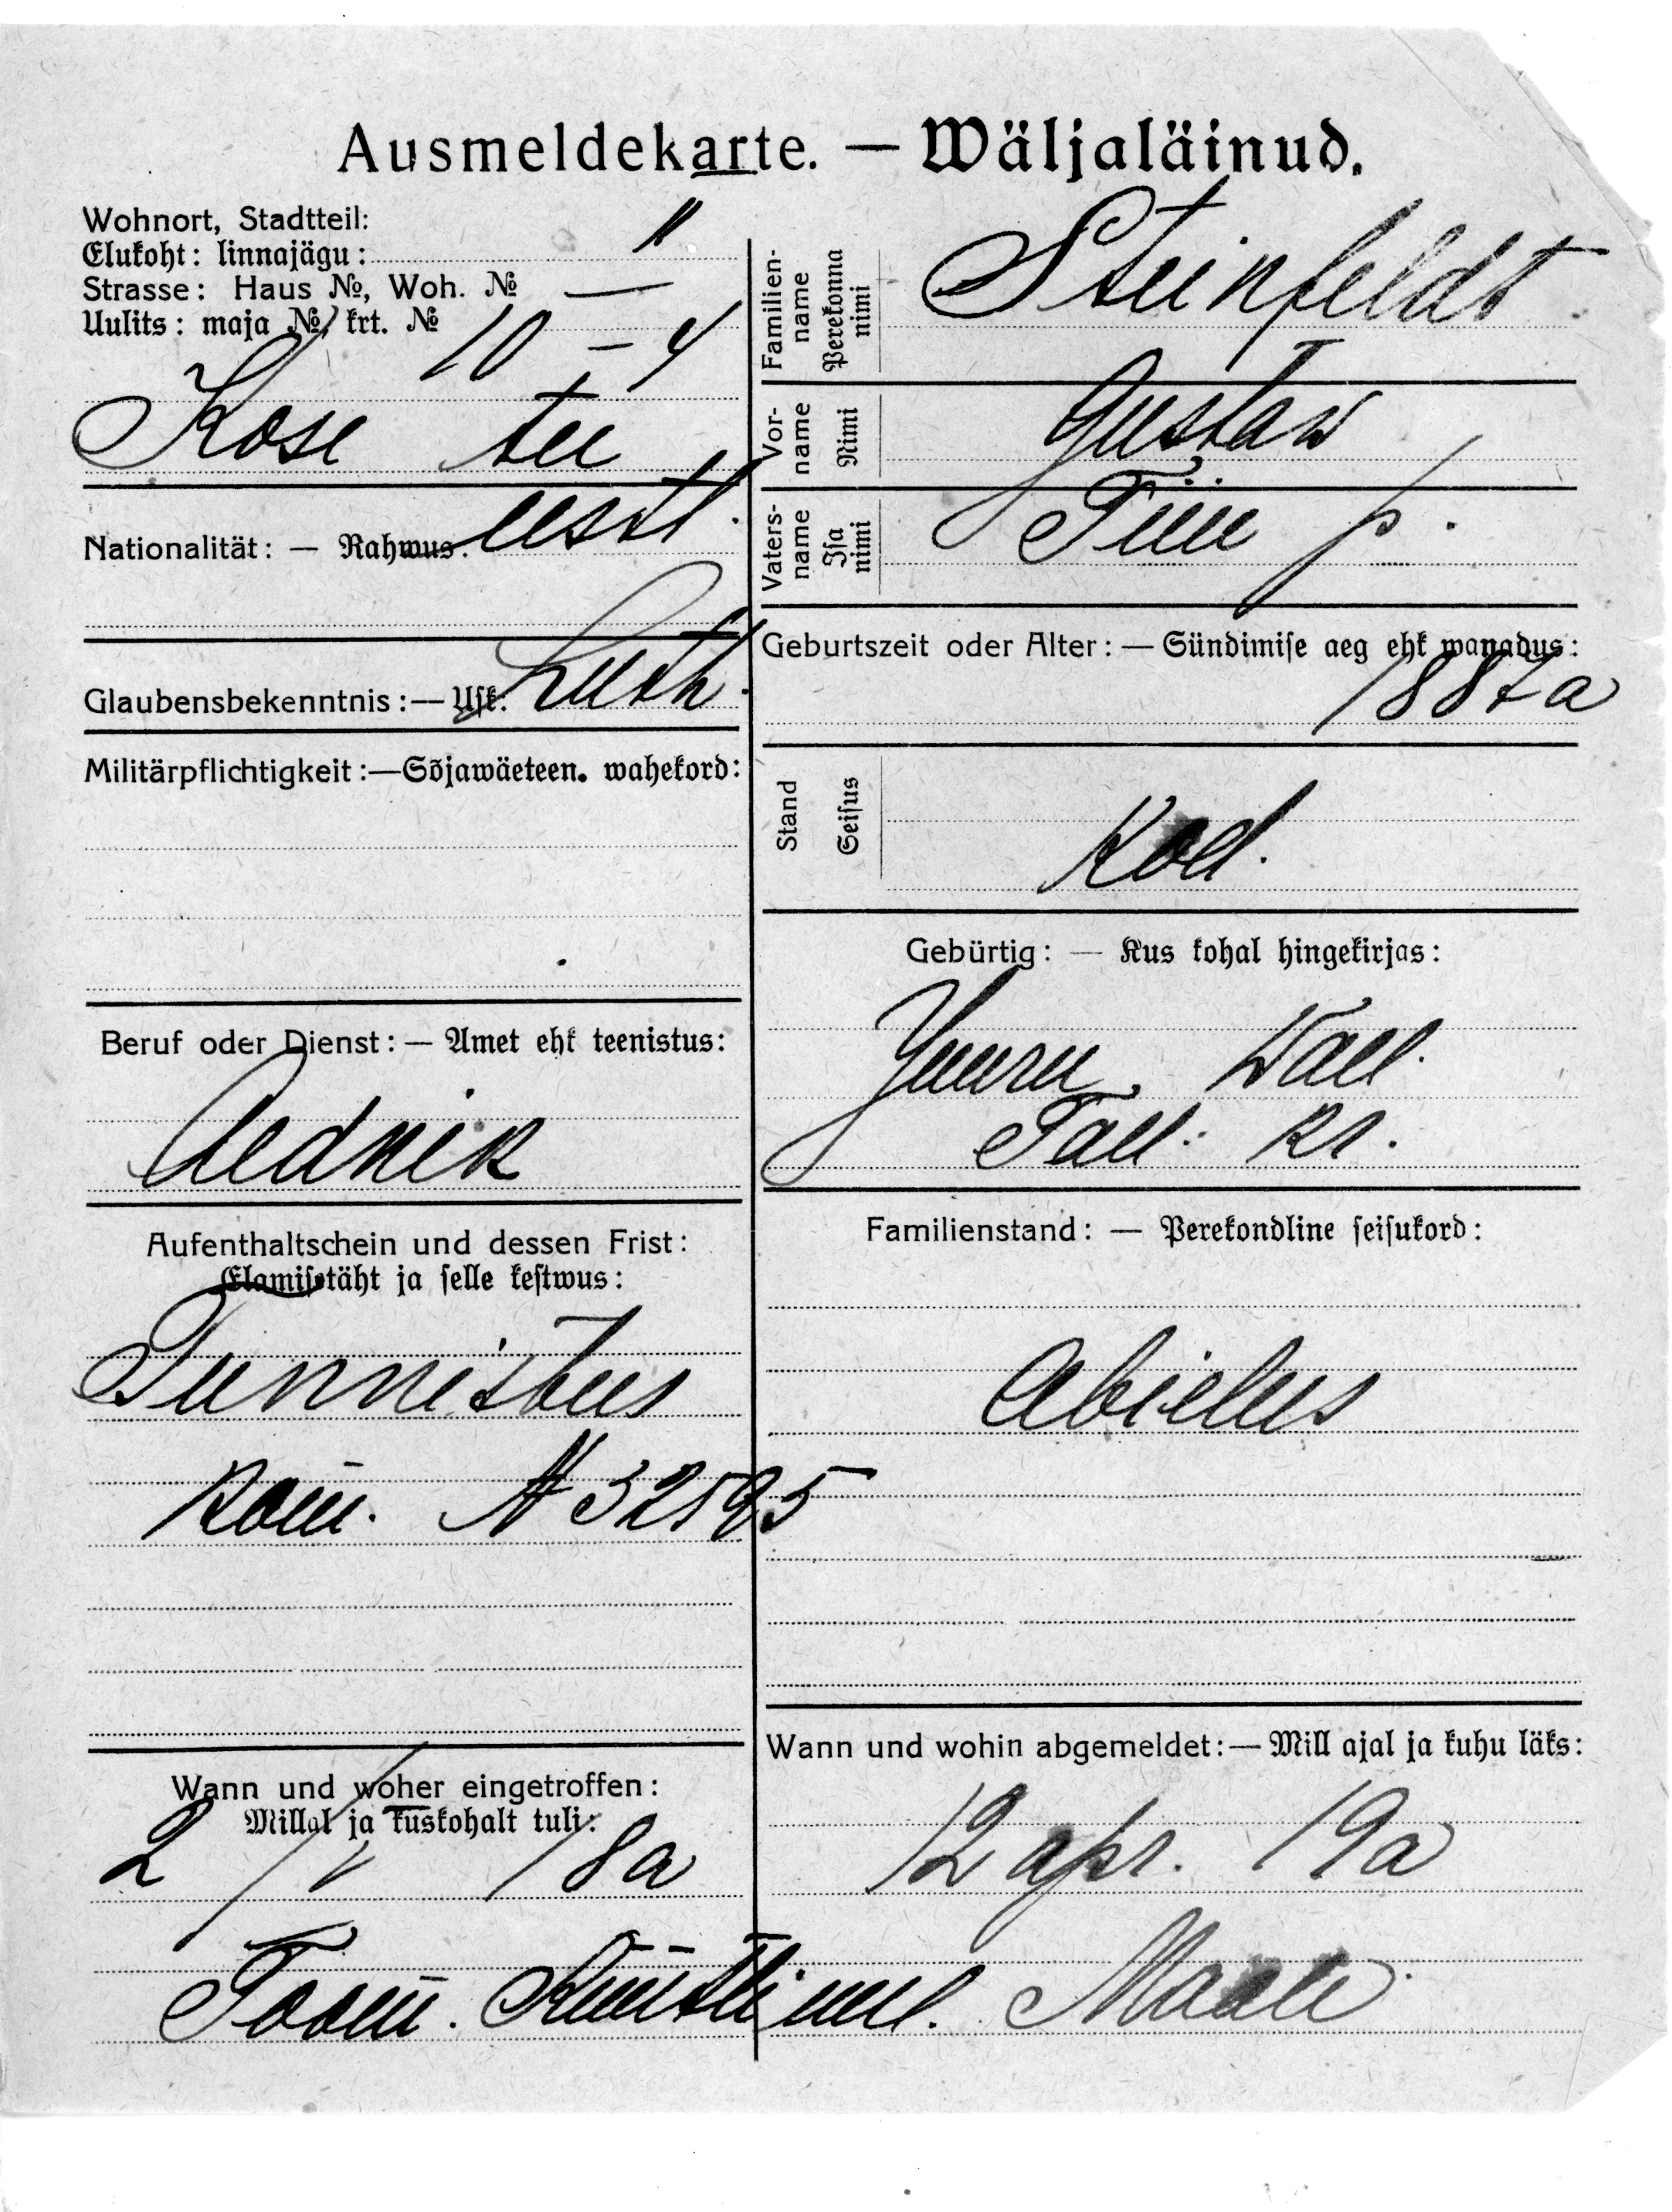 Ausmeldekarte. — Wäljaläinud.
Wohnort, Stadtteil:
Elukoht: linnajägu: "
Strasse: Haus №, Woh. № —
Uulits: maja № / krt. № 10 – 4
Kose tee
Nationalität: — Rahwus: eestl.
Glaubensbekenntnis: — Usk: Luth.
Militärpflichtigkeit: — Sõjawäeteen. wahekord:
Beruf oder Dienst: — Amet ehk teenistus:
Aednik
Aufenthaltschein und dessen Frist:
Elamisetäht ja selle kestwus:
Tunnistus
Kom. № 32595
Wann und woher eingetroffen:
Millal ja kuskohalt tuli:
2/V 18a
Toom.
Familien-
name
Perekonna
nimi
Steinfeldt
Vor-
name
Nimi
Gustaw
Vaters-
name
Isa
nimi
p.
Geburtszeit oder Alter: — Sündimise aeg ehk wanadus:
1887a
Stand
Seisus
Kod.
Gebürtig: — Kus kohal hingekirjas:
Wall.
Tall. kr.
Familienstand: — Perekondline seisukord:
Abielus
Wann und wohin abgemeldet: — Mill ajal ja kuhu läks:
12 apr. 19a
Maale